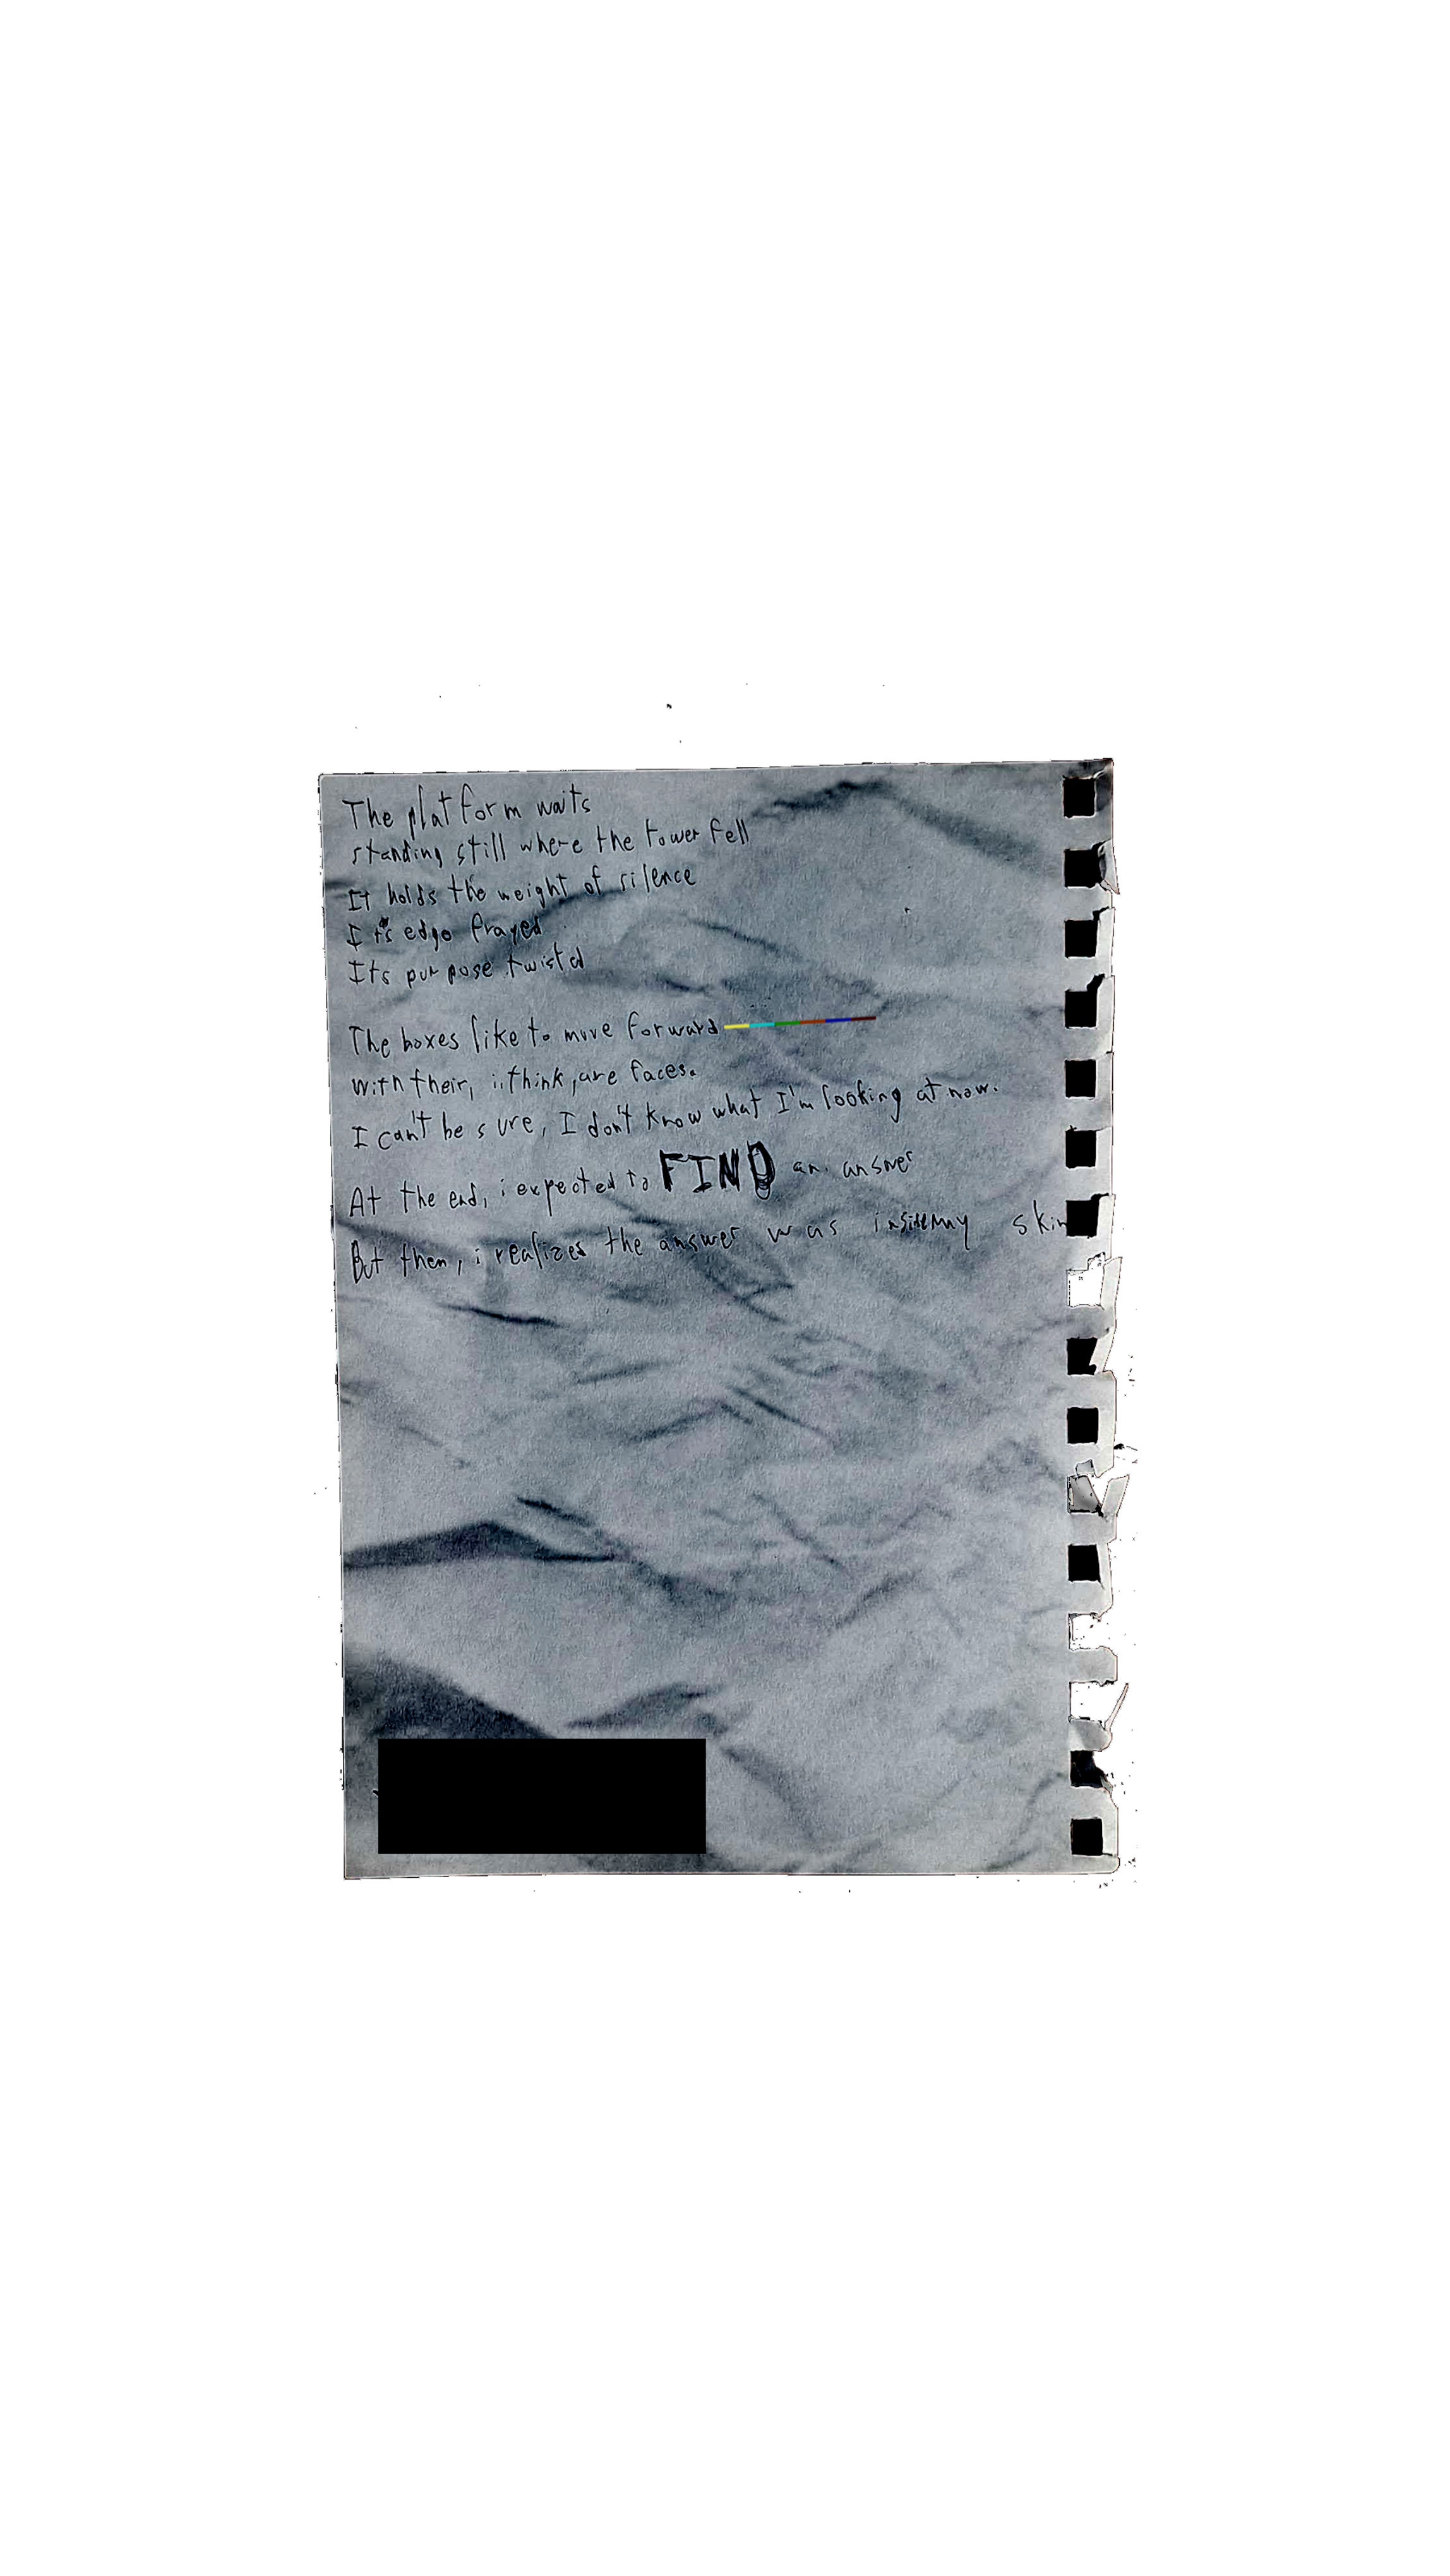 The platform waits
standing still where the tower fell
It holds the weight of silence
Its edge frayed
Its purpose twisted
The boxes like to move forward
with their, i..think, are faces.
I can't be sure, I don't know what I'm looking at now.
At the end, i expected to FIND an answer
But then, i realizes the answer was my skin